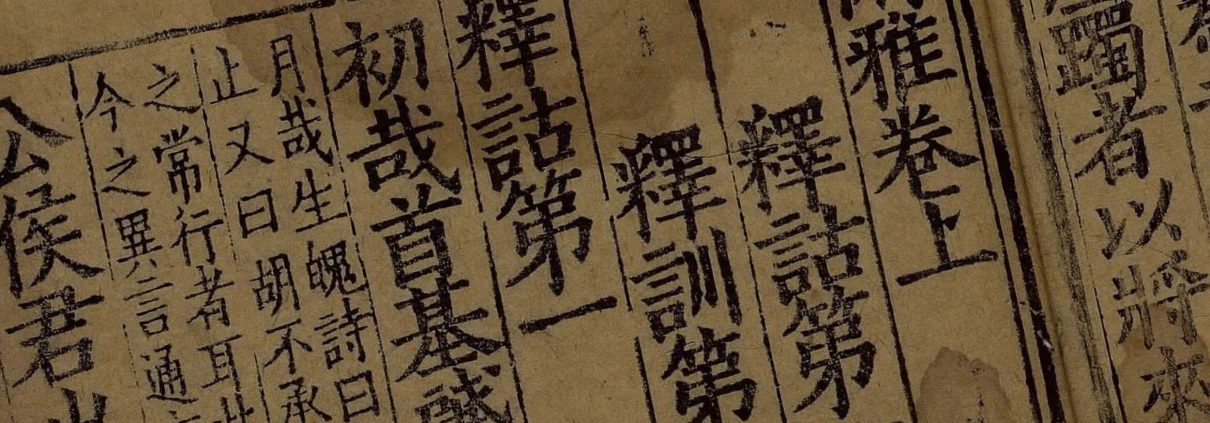 躅者以將來
雅卷上
釋詁第
釋訓第
釋詁第一
初哉首基
月哉生魄詩曰
止又曰胡不承
之常行者耳
今之異言通
公侯君